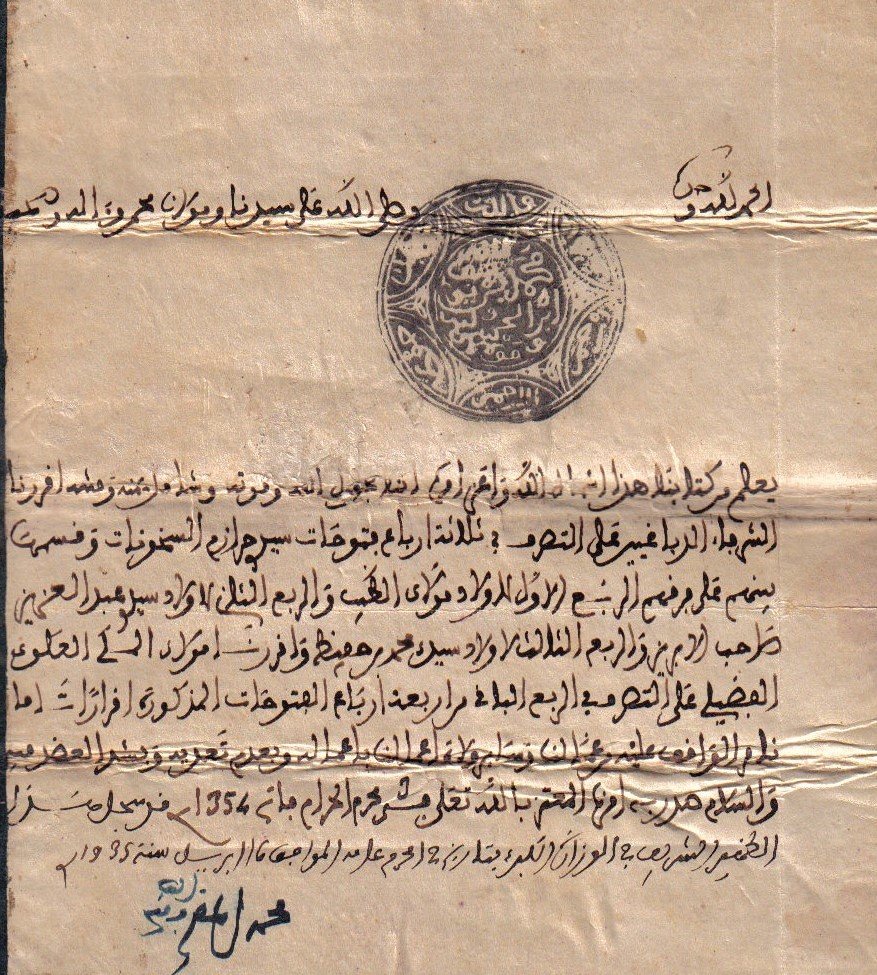 الحمد لله وحده
وصلى الله على سيدنا ومولانا محمد وءاله
يعلم من كتابنا هذا أسماه الله وأعز أمره أننا بحول الله وقوته وشامل يمنه ومنته أقررنا
الشرفاء الدباغيين على التصرف في ثلاثة أرباع فتوحات سيدي حرازم السخونات وقسمت
بينهم على فرقهم الربع الأول لأولاد مولاي الطيب والربع الثاني لأولاد سيدي عبد العزيز
صاحب الابريز والربع الثالث لأولاد سيدي محمد بن وأقررنا مولاي العلوي
الفضيلي على التصرف في الربع الباقي من أربعة أرباع الفتوحات المذكورة إقرارا تاما
نامر الواقف عليه من عمالنا وسائر ولاة أمرنا بإعماله وبعدم تعديه
والسلام صدر به أمرنا المعتز بالله تعالى في محرم الحرام فاتح 1354 قد سجل
الظهير الشريف في الوزارة الكبرى بتاريخ محرم عامه الموافق ابريل سنة 1935
محمد المقري
الله